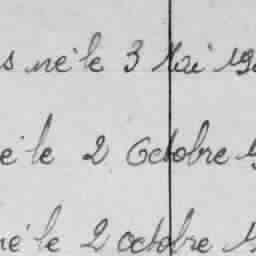 s né le 3 Mai 19
é le 2 Octobre 1
né le 2 octobre 1